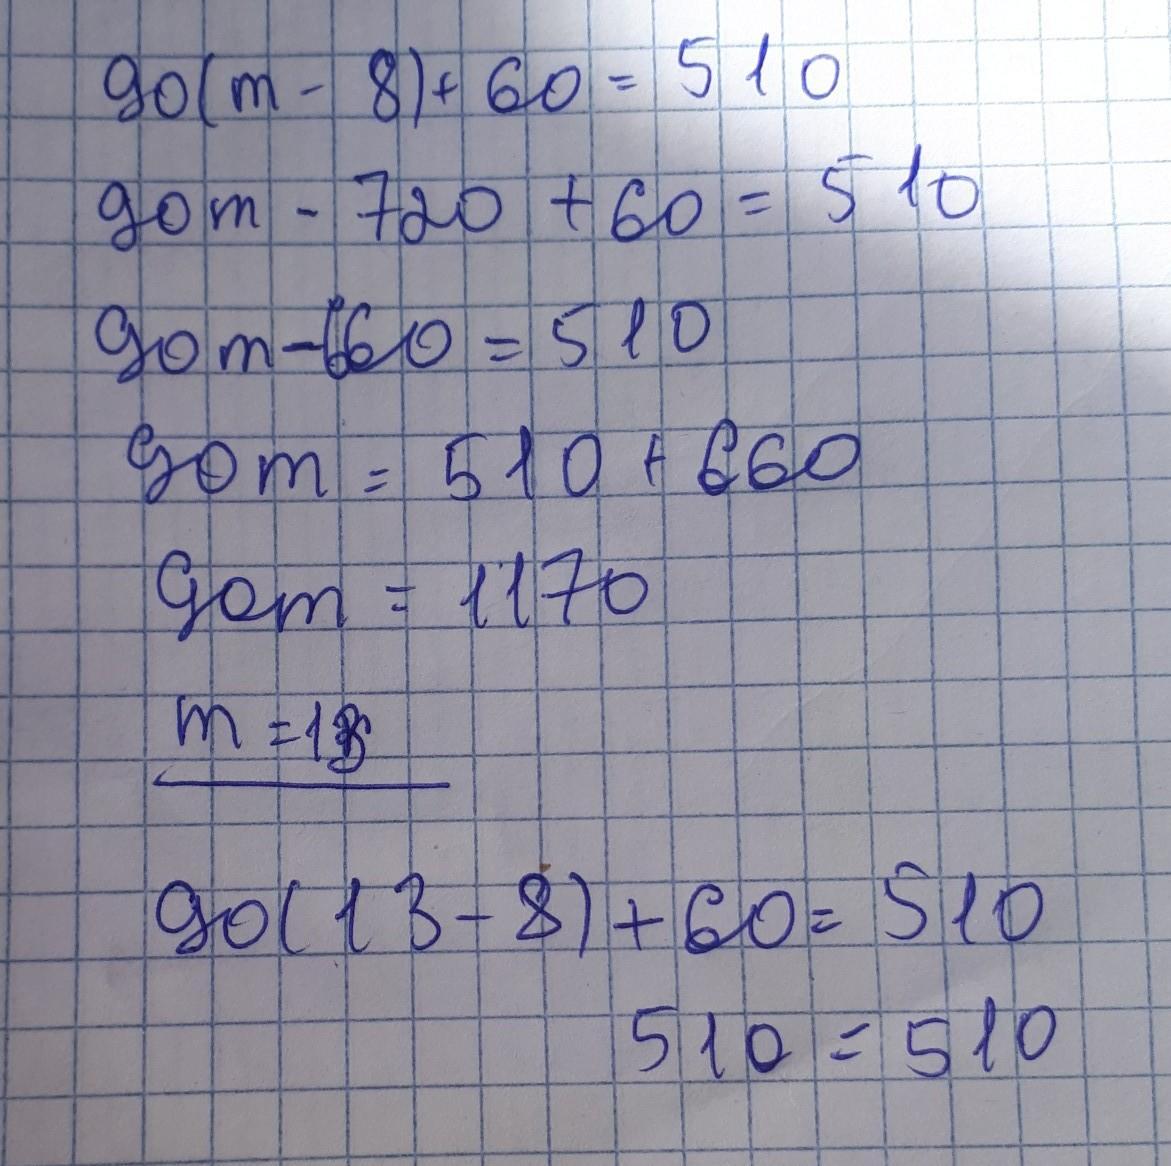 90(m - 8)+ 60 = 510
90m - 720 + 60 = 510
90m - 660 = 510
90m = 510 + 660
90m = 1170
m = 13
90(13 - 8) + 60 = 510
510 = 510